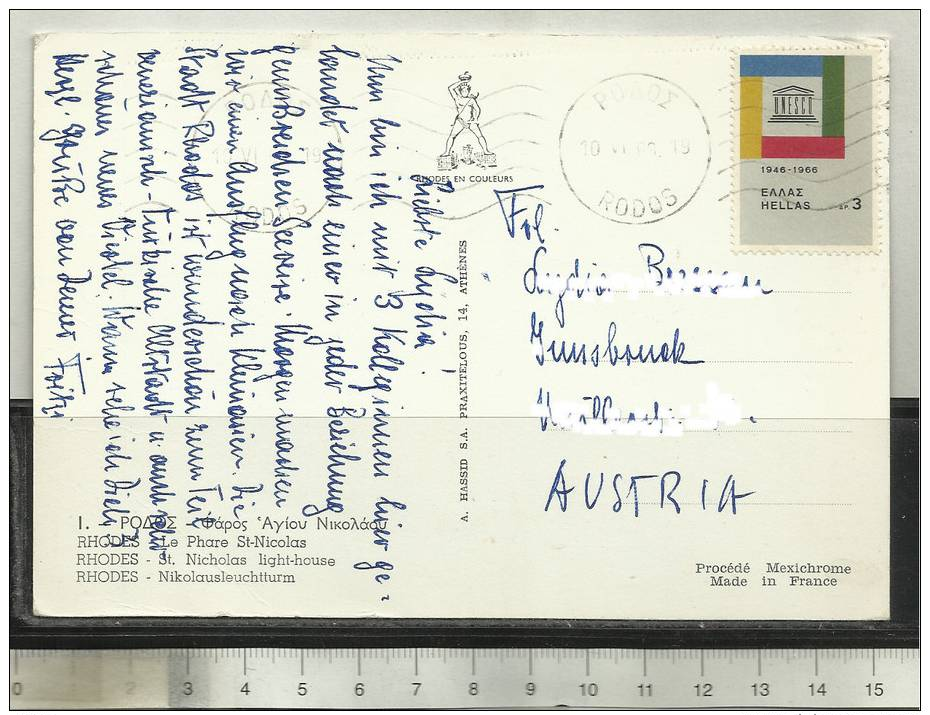 Liebste Lydia!
Nun bin ich mit 3 Kolleginnen hier ge-
landet nach einer in jeder Beziehung
genußreichen Seereise. Morgen machen
wir einen Ausflug nach Kleinasien. Die
Stadt Rhodos ist wunderschön zum Teil
venezianisch-Türkische Altstadt u. auch sehr
schönes neues Viertel. Wann sehe ich Dich?
Herzl. Grüße von Deiner Fritzi
ΡΟΔΟΣ
10 VI 19
RODOS
RHODES EN COULEURS
A. HASSID S.A. PRAXITELOUS, 14, ATHÈNES
ΡΟΔΟΣ
10 VI 66. 19
RODOS
UNESCO
1946-1966
ΕΛΛΑΣ
HELLAS ΔΡ. 3
Frl.
Lydia
Innsbruck
AUSTRIA
I. - ΡΟΔΟΣ - Φάρος Ἁγίου Νικολάου
RHODES - Le Phare St-Nicolas
RHODES - St. Nicholas light-house
RHODES - Nikolausleuchtturm
Procédé Mexichrome
Made in France
0 2 3 4 5 6 7 8 9 10 11 12 13 14 15